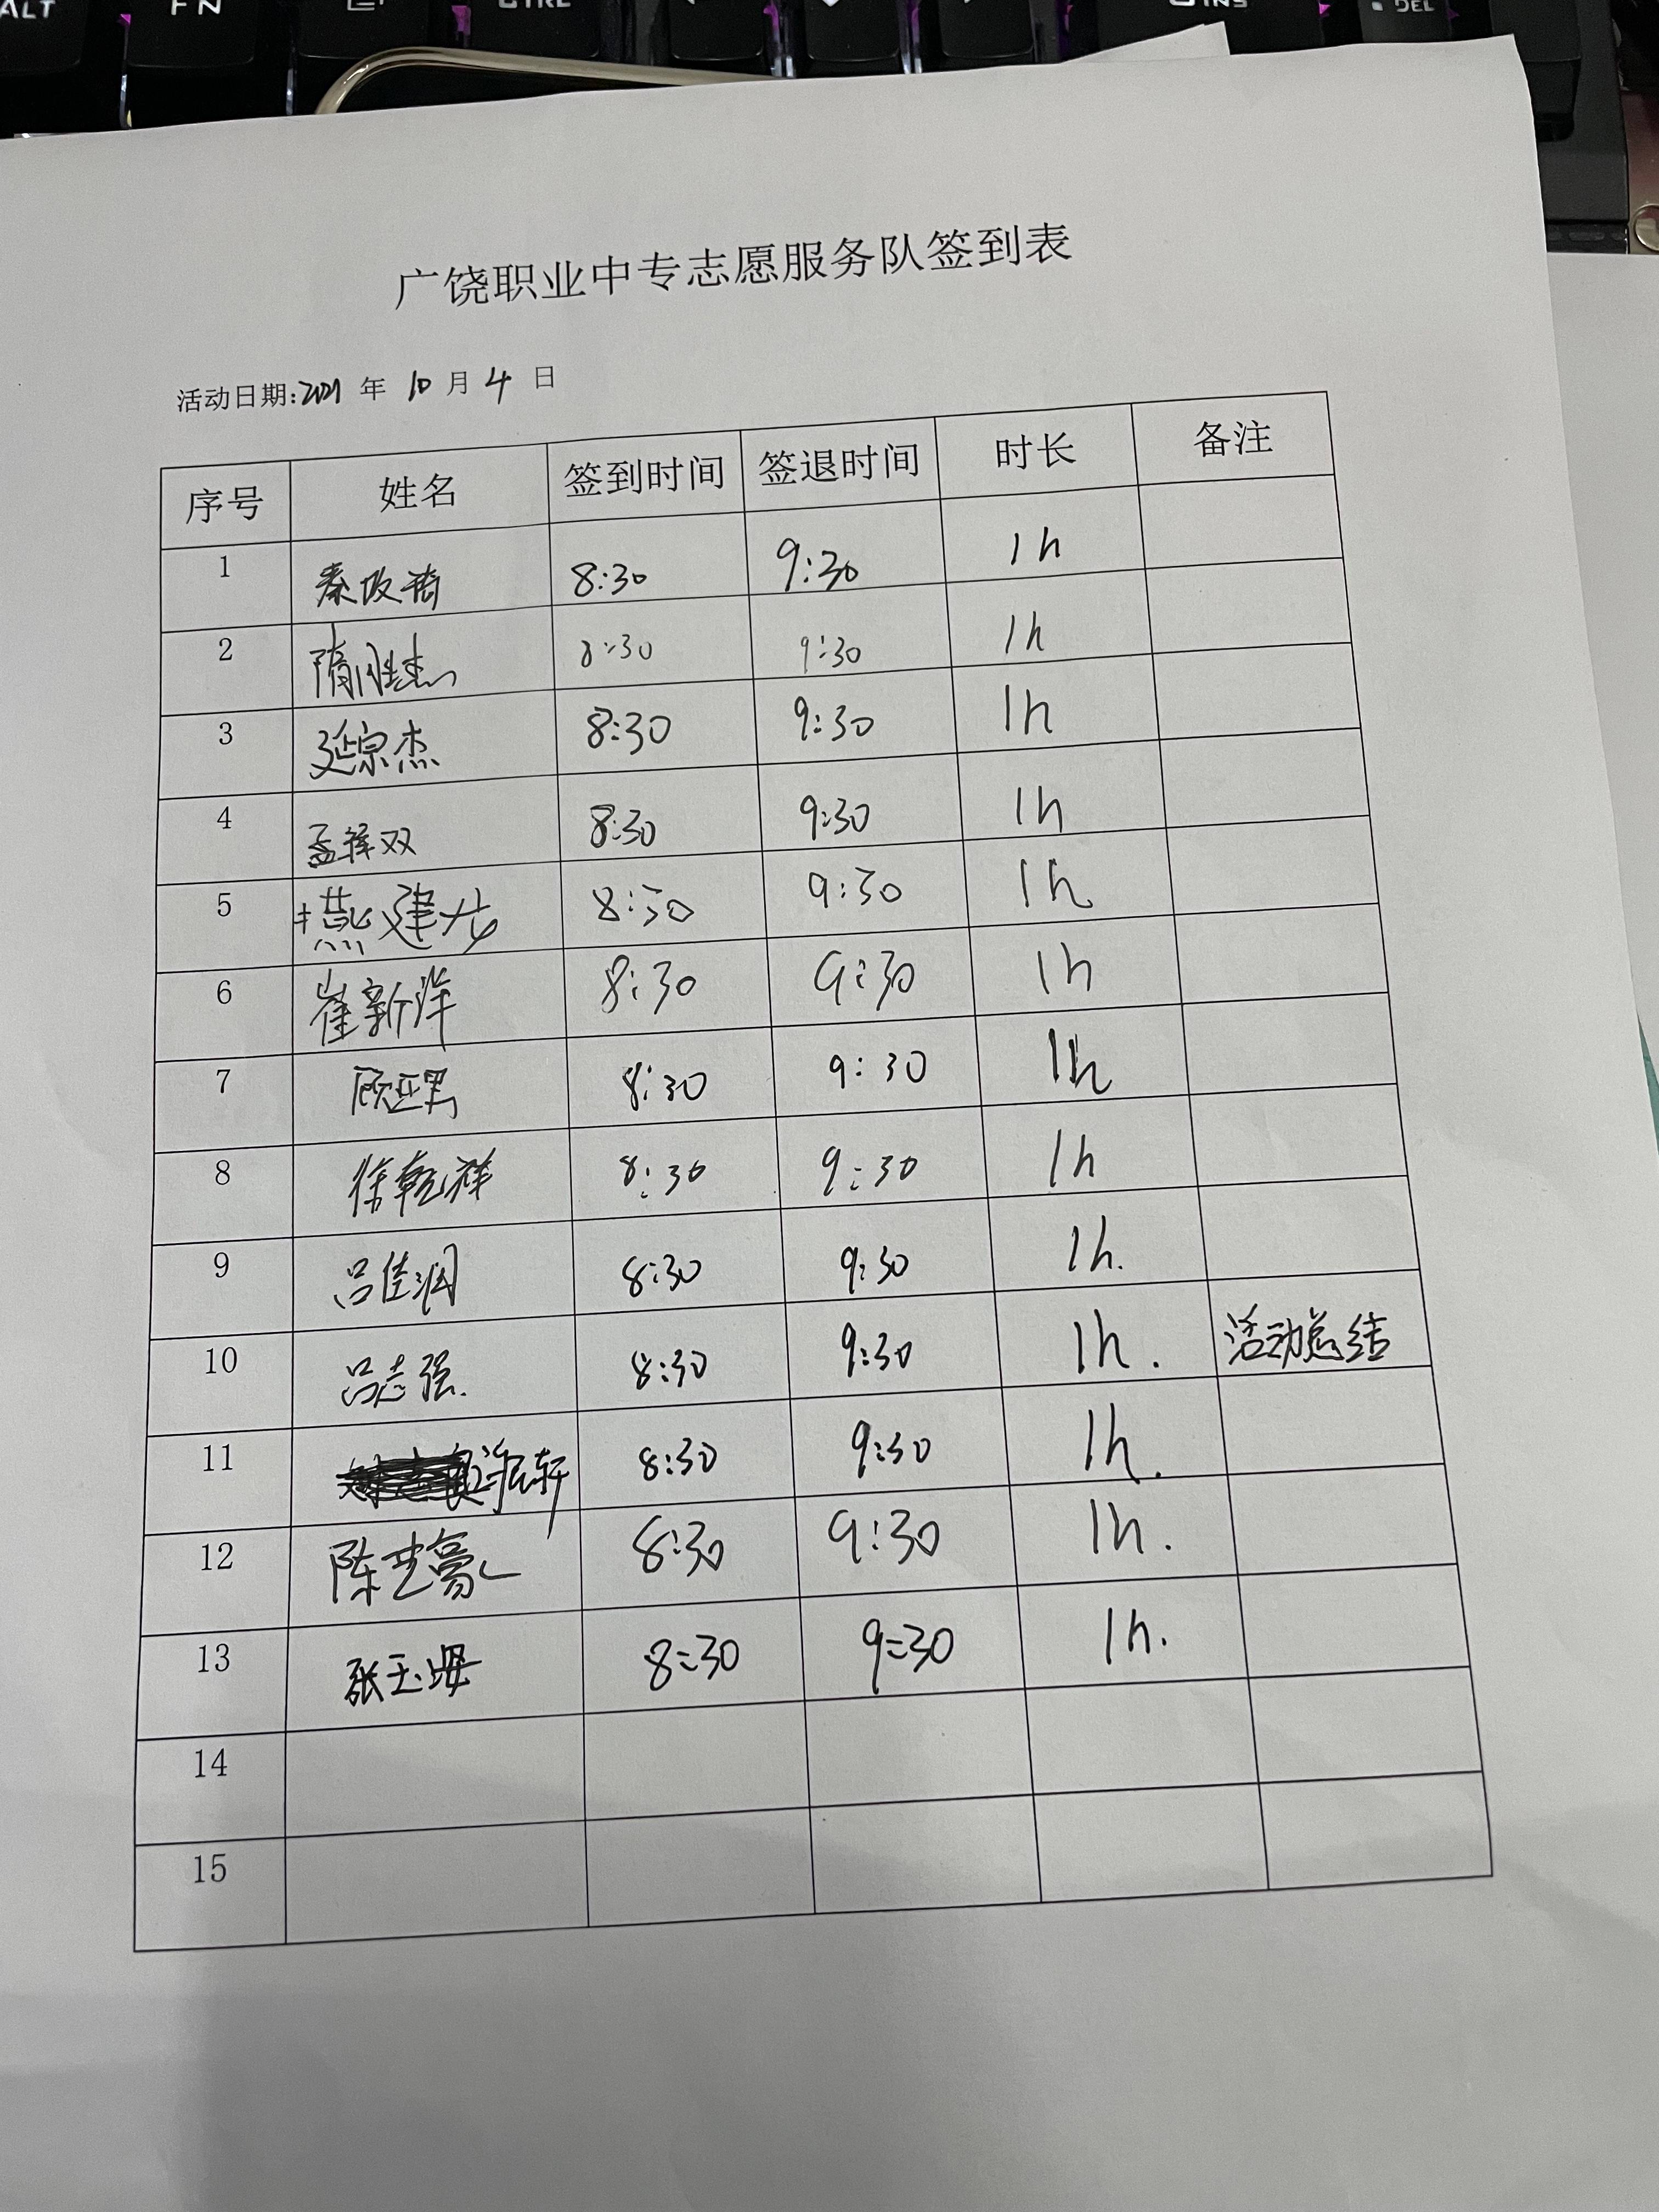 ALT FN CTRL INS DEL
广饶职业中专志愿服务队签到表
活动日期:2021 年 10 月 4 日
序号 姓名 签到时间 签退时间 时长 备注
1 8:30 9:30 1h
2 隋胜杰 8:30 9:30 1h
3 延宗杰 8:30 9:30 1h
4 孟祥双 8:30 9:30 1h
5 燕建龙 8:30 9:30 1h
6 崔新洋 8:30 9:30 1h
7 顾亚男 8:30 9:30 1h
8 徐乾祥 8:30 9:30 1h
9 吕佳润 8:30 9:30 1h.
10 吕志强. 8:30 9:30 1h. 活动总结
11 8:30 9:30 1h.
12 陈艺豪 8:30 9:30 1h.
13 张玉 8:30 9:30 1h.
14
15